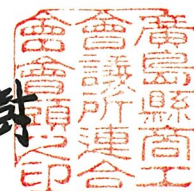 廣島縣商工
會議所連合
會會頭之印